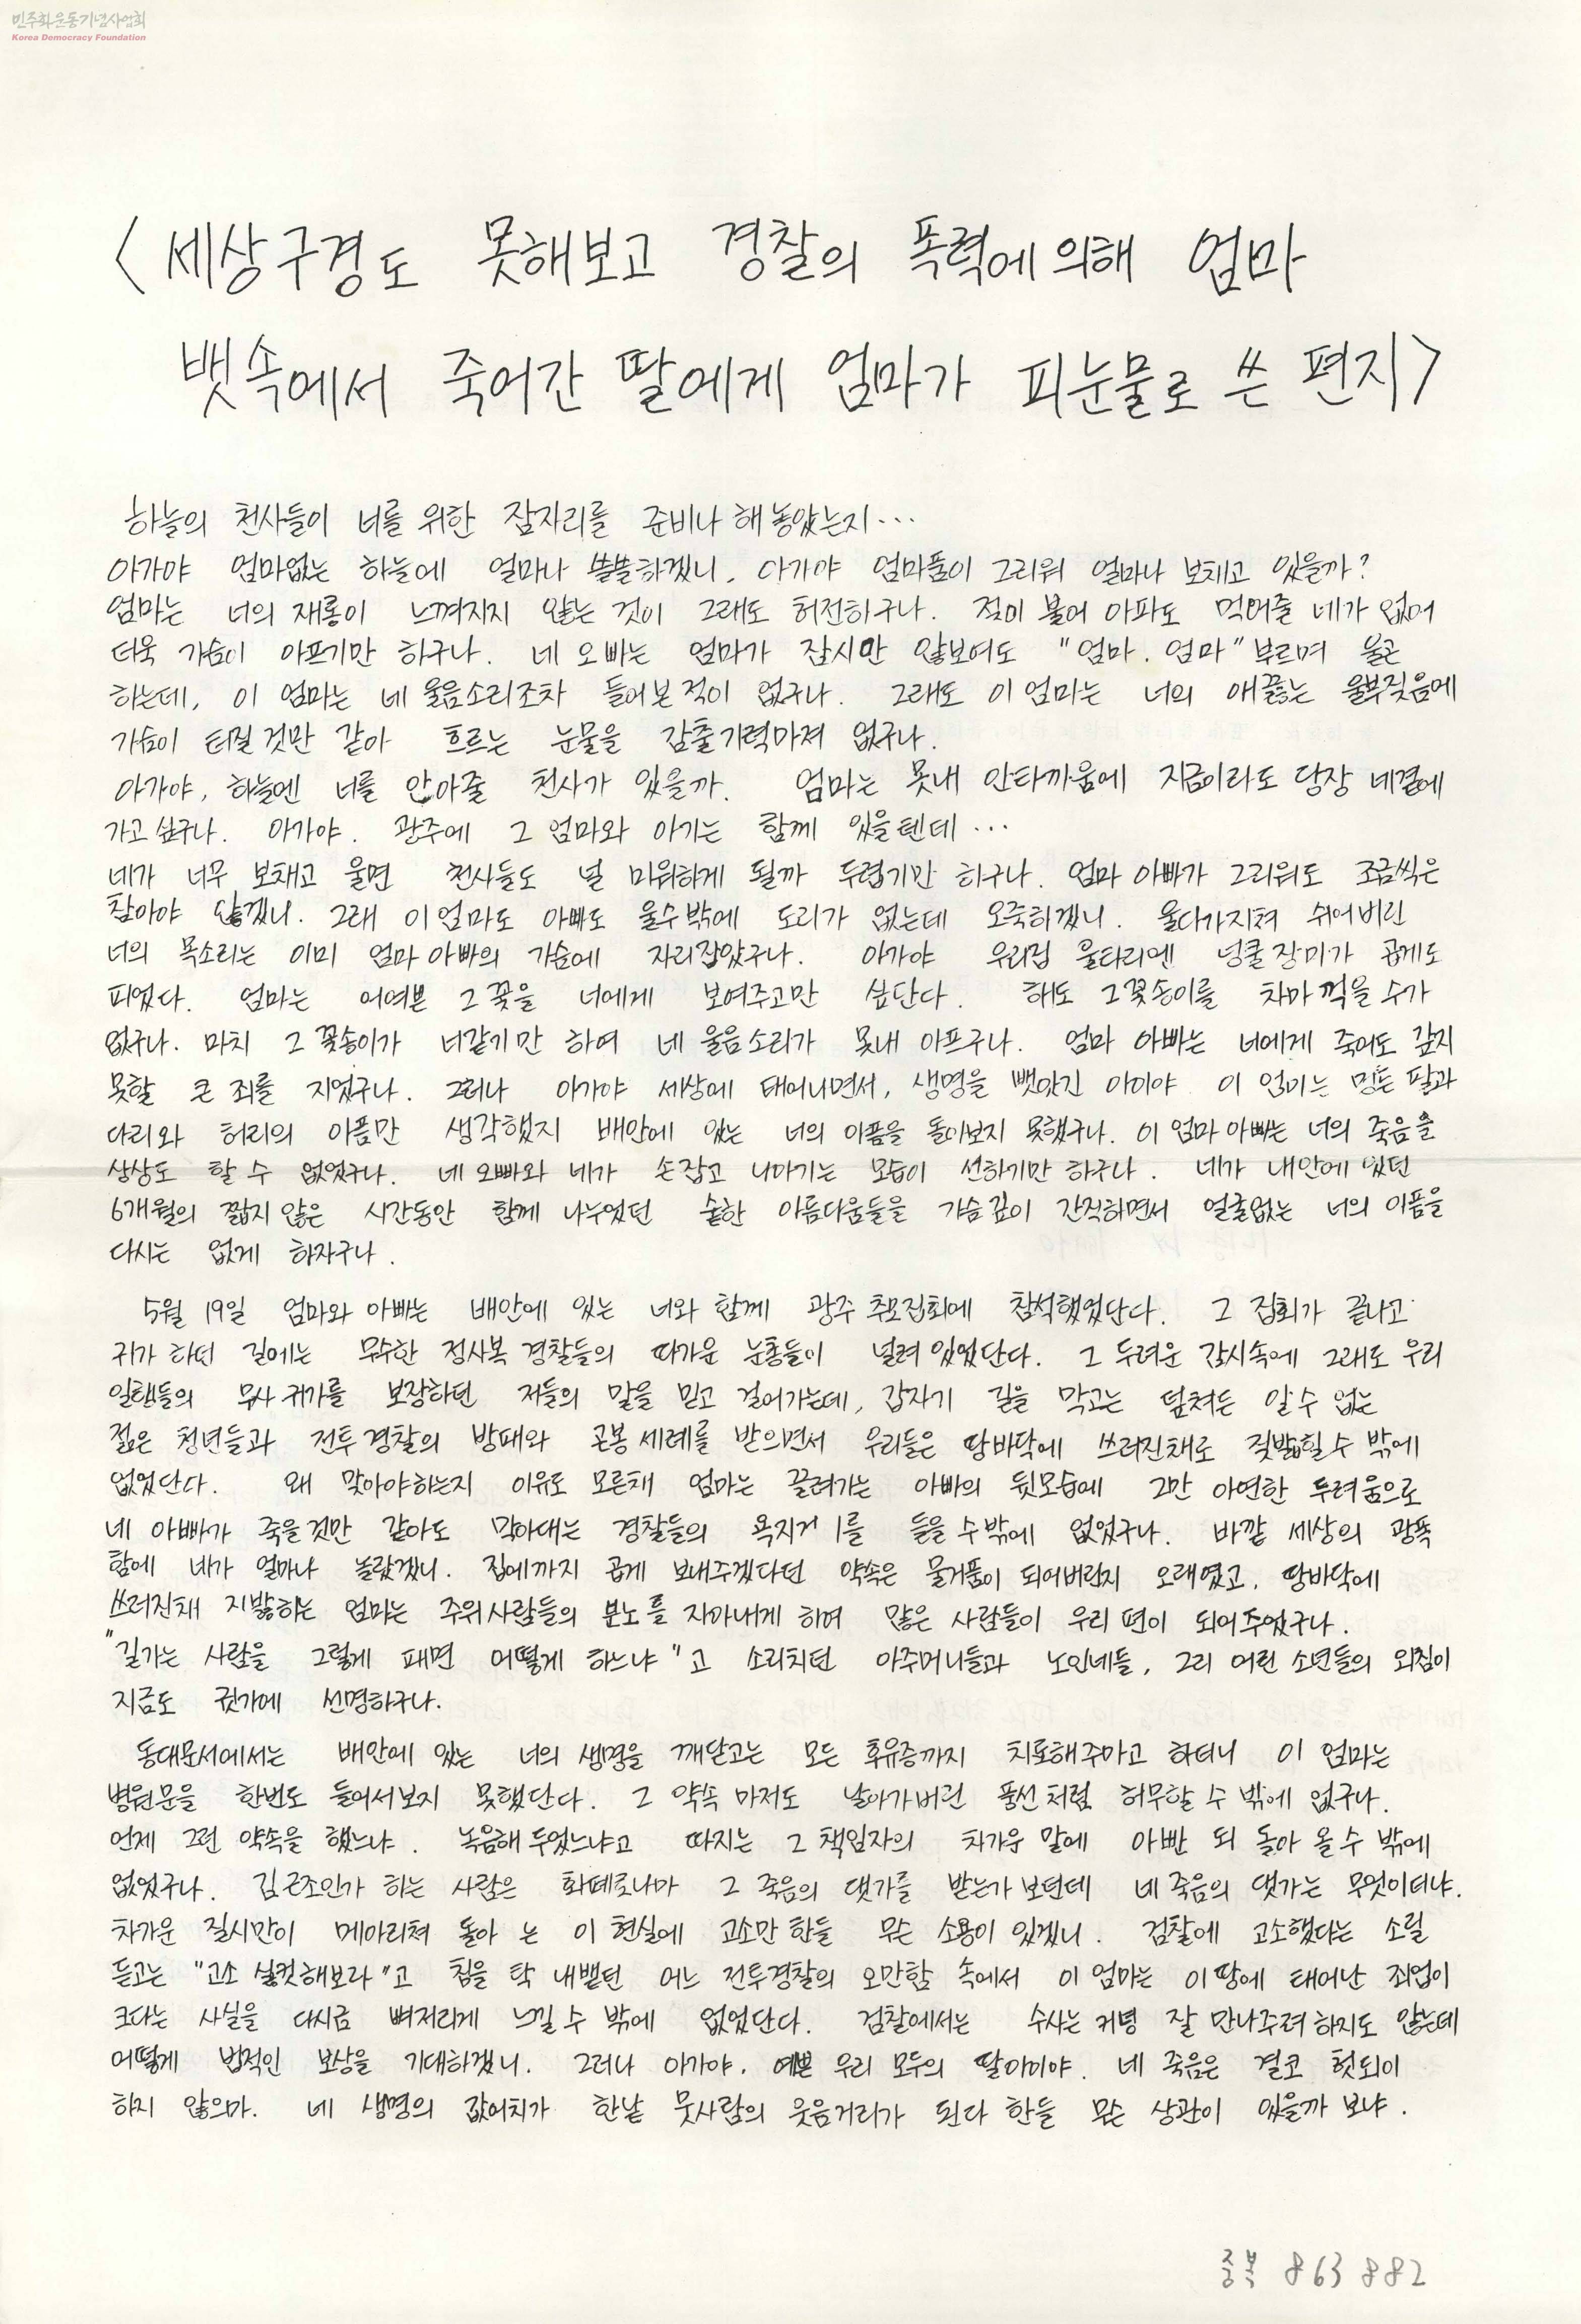 민주화운동기념사업회
Korea Democracy Foundation
〈세상구경도 못해보고 경찰의 폭력에 의해 엄마
뱃속에서 죽어간 딸에게 엄마가 피눈물로 쓴 편지〉
하늘의 천사들이 너를 위한 잠자리를 준비나 해놓았는지···
아가야 엄마없는 하늘에 얼마나 쓸쓸하겠니. 아가야 엄마품이 그리워 얼마나 보채고 있을까?
엄마는 너의 재롱이 느껴지지 않는 것이 그래도 허전하구나. 젖이 불어 아파도 먹어줄 네가 없어
더욱 가슴이 아프기만 하구나. 네 오빠는 엄마가 잠시만 않보여도 "엄마. 엄마" 부르며 울곤
하는데, 이 엄마는 네 울음소리조차 들어본적이 없구나. 그래도 이 엄마는 너의 애끓는 울부짖음에
가슴이 터질것만 같아 흐르는 눈물을 감출기력마져 없구나.
아가야, 하늘엔 너를 안아줄 천사가 있을까. 엄마는 못내 안타까움에 지금이라도 당장 네곁에
가고싶구나. 아가야. 광주에 그 엄마와 아기는 함께 있을텐데···
네가 너무 보채고 울면 천사들도 널 미워하게 될까 두렵기만 하구나. 엄마 아빠가 그리워도 조금씩은
참아야 않겠니. 그래 이 엄마도 아빠도 울수밖에 도리가 없는데 오죽하겠니. 울다가지쳐 쉬어버린
너의 목소리는 이미 엄마 아빠의 가슴에 자리잡았구나. 아가야 우리집 울타리엔 넝쿨장미가 곱게도
피었다. 엄마는 어여쁜 그꽃을 너에게 보여주고만 싶단다. 해도 그꽃송이를 차마 꺽을 수가
없구나. 마치 그 꽃송이가 너같기만 하여 네 울음소리가 못내 아프구나. 엄마 아빠는 너에게 죽어도 갚지
못할 큰 죄를 지었구나. 그러나 아가야 세상에 태어나면서, 생명을 뺏았긴 아이야 이 엄마는 멍든 팔과
다리와 허리의 아픔만 생각했지 배안에 있는 너의 아픔을 돌아보지 못했구나. 이 엄마 아빠는 너의 죽음을
상상도 할 수 없었구나. 네 오빠와 네가 손잡고 나아가는 모습이 선하기만 하구나. 네가 내안에 있던
6개월의 짧지않은 시간동안 함께 나누었던 숱한 아름다움들을 가슴깊이 간직하면서 얼굴없는 너의 아픔을
다시는 없게 하자구나.
5월 19일 엄마와 아빠는 배안에 있는 너와 함께 광주 추모집회에 참석했었단다. 그 집회가 끝나고
귀가 하던 길에는 무수한 정사복 경찰들의 따가운 눈총들이 널려 있었단다. 그 두려운 감시속에 그래도 우리
일행들의 무사 귀가를 보장하던 저들의 말을 믿고 걸어가는데, 갑자기 길을 막고는 덮쳐든 알수 없는
젊은 청년들과 전투경찰의 방패와 곤봉 세례를 받으면서 우리들은 땅바닥에 쓰러진채로 짖밟힐수 밖에
없었단다. 왜 맞아야하는지 이유도 모른채 엄마는 끌려가는 아빠의 뒷모습에 그만 아연한 두려움으로
네 아빠가 죽을것만 같아도 막아대는 경찰들의 욕지거리를 들을수밖에 없었구나. 바깥 세상의 광폭
함에 네가 얼마나 놀랐겠니. 집에까지 곱게 보내주겠다던 약속은 물거품이 되어버린지 오래였고, 땅바닥에
쓰러진채 지밟히는 엄마는 주위사람들의 분노를 자아내게 하여 많은 사람들이 우리 편이 되어주었구나.
"길가는 사람을 그렇게 패면 어떻게 하느냐"고 소리치던 아주머니들과 노인네들, 그리 어린 소년들의 외침이
지금도 귓가에 선명하구나.
동대문서에서는 배안에 있는 너의 생명을 깨닫고는 모든 후유증까지 치료해주마고 하더니 이 엄마는
병원문을 한번도 들어서보지 못했단다. 그 약속 마저도 날아가버린 풍선처럼 허무할 수 밖에 없구나.
언제 그런 약속을 했느냐. 녹음해 두었느냐고 따지는 그 책임자의 차가운 말에 아빤 되 돌아 올수 밖에
없었구나. 김근조인가 하는 사람은 화떼로나마 그 죽음의 댓가를 받는가 보던데 네 죽음의 댓가는 무엇이더냐.
차가운 질시만이 메아리쳐 돌아 는 이 현실에 고소만 한들 무슨 소용이 있겠니. 검찰에 고소했다는 소릴
듣고는 "고소 실컷해보라"고 침을 탁 내뱉던 어느 전투경찰의 오만함 속에서 이 엄마는 이땅에 태어난 죄업이
크다는 사실을 다시금 뼈저리게 느낄수 밖에 없었단다. 검찰에서는 수사는 커녕 잘 만나주려하지도 않는데
어떻게 법적인 보상을 기대하겠니. 그러나 아가야. 예쁜 우리 모두의 딸아이야. 네 죽음은 결코 헛되이
하지 않으마. 네 생명의 값어치가 한낱 뭇사람의 웃음거리가 된다 한들 무슨 상관이 있을까 보냐.
중복 863882